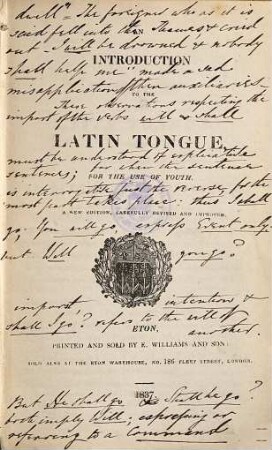 dwell" The foreigner who as it is
said fell into the Thames & cried
AN
out. I will be drowned & nobody
INTRODUCTION
shall help me" made a sad
misapplication of these auxiliaries
TO THE
These observations respecting the
import of the verbs will & shall
LATIN TONGUE,
must be understood of explicative
sentences; for when the sentence
FOR THE USE OF YOUTH.
is interrogative just the reverse for the
most part takes place: thus I shall
A NEW EDITION, CAREFULLY REVISED AND IMPROVED.
go; You will go express Event only
but Will you go?
import intention &
shall I go? refers to the will of
ETON,
another.
PRINTED AND SOLD BY E. WILLIAMS AND SON:
SOLD ALSO AT THE ETON WAREHOUSE, NO. 186 FLEET STREET, LONDON.
1837
But He shall go & Shall he go?
both imply Will: expressing or
referring to a Command